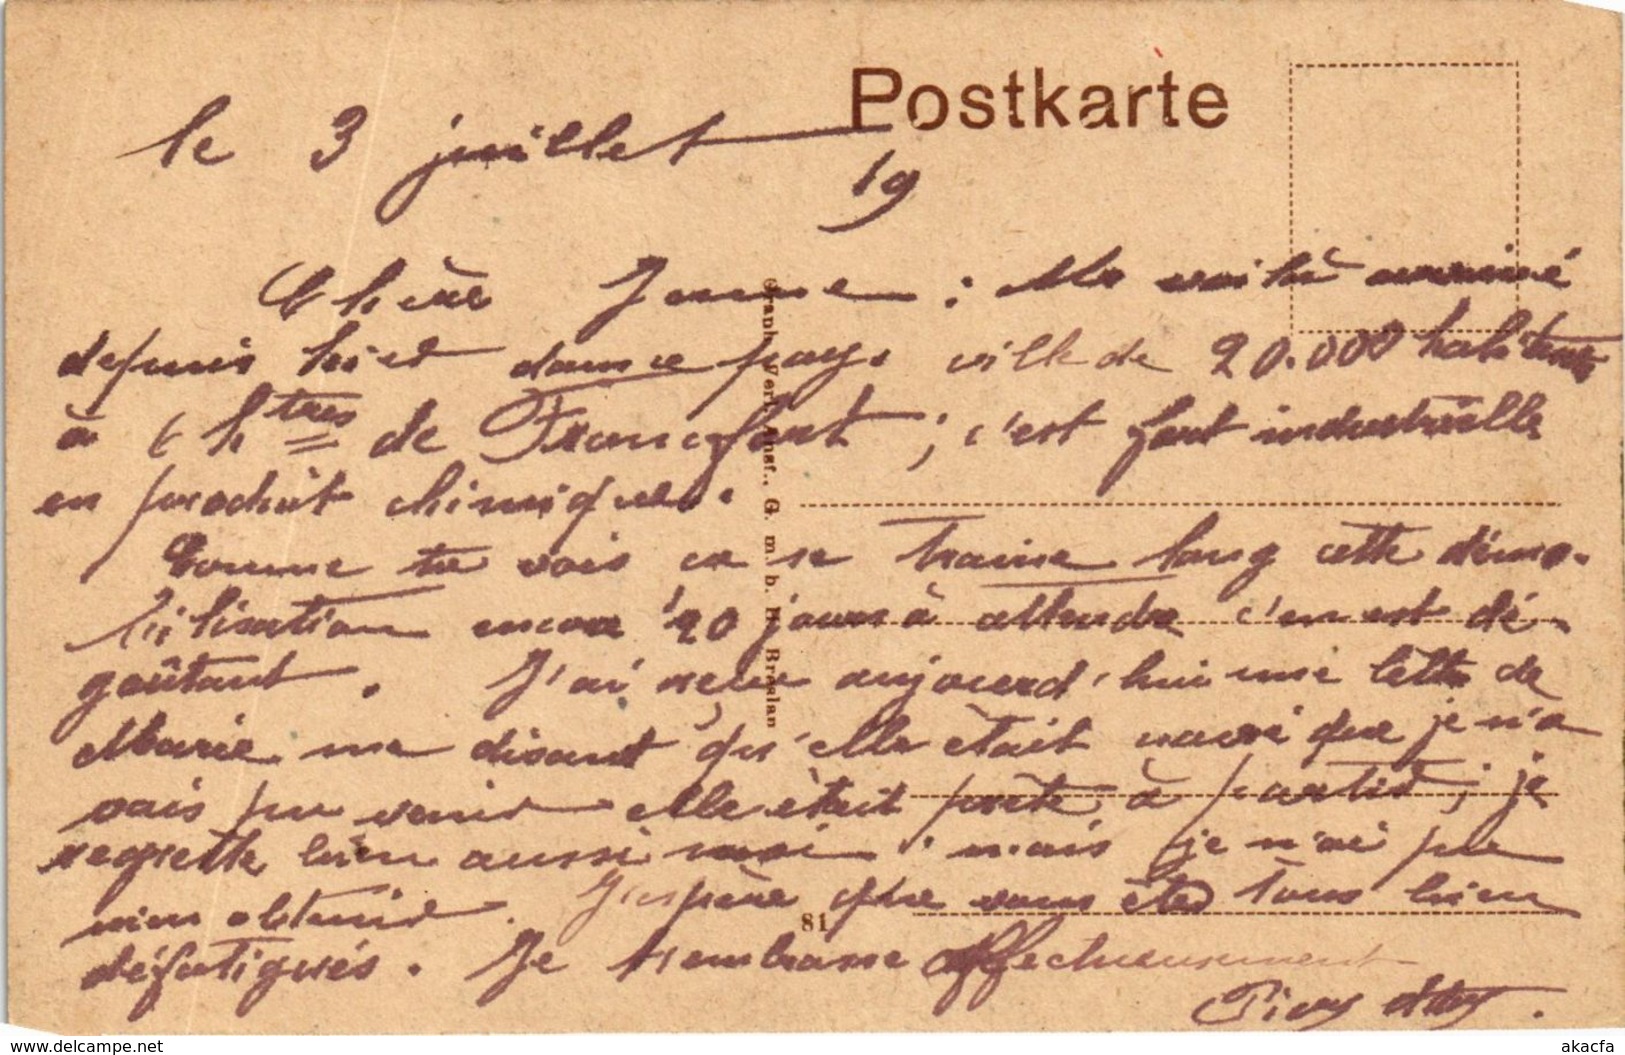 Postkarte
le 3 juillet
19
Chère Jeanne : Me voilà arrivé
depuis hier dans ce pays ville de 20.000 habitants
à 6 htres de Francfort ; c'est fort industrielle
en produit chimiques.
Comme tu vois ca se traine long cette démo-
bilisation encore 20 jours à attendre c'en est dé-
goûtant. J'ai reçu aujourd'hui une lettre de
Marie me disant qu'elle était navré que je n'a
vais pu venir elle était prète à partir ; je
regrette bien aussi moi mais je n'ai pu
rien obtenir. J'espère que vous êtes tous bien
défatigués. Je t'embrasse affectueusement
Graph. Verl.-Anst., G. m. b. H. Breslau
81
akacfa